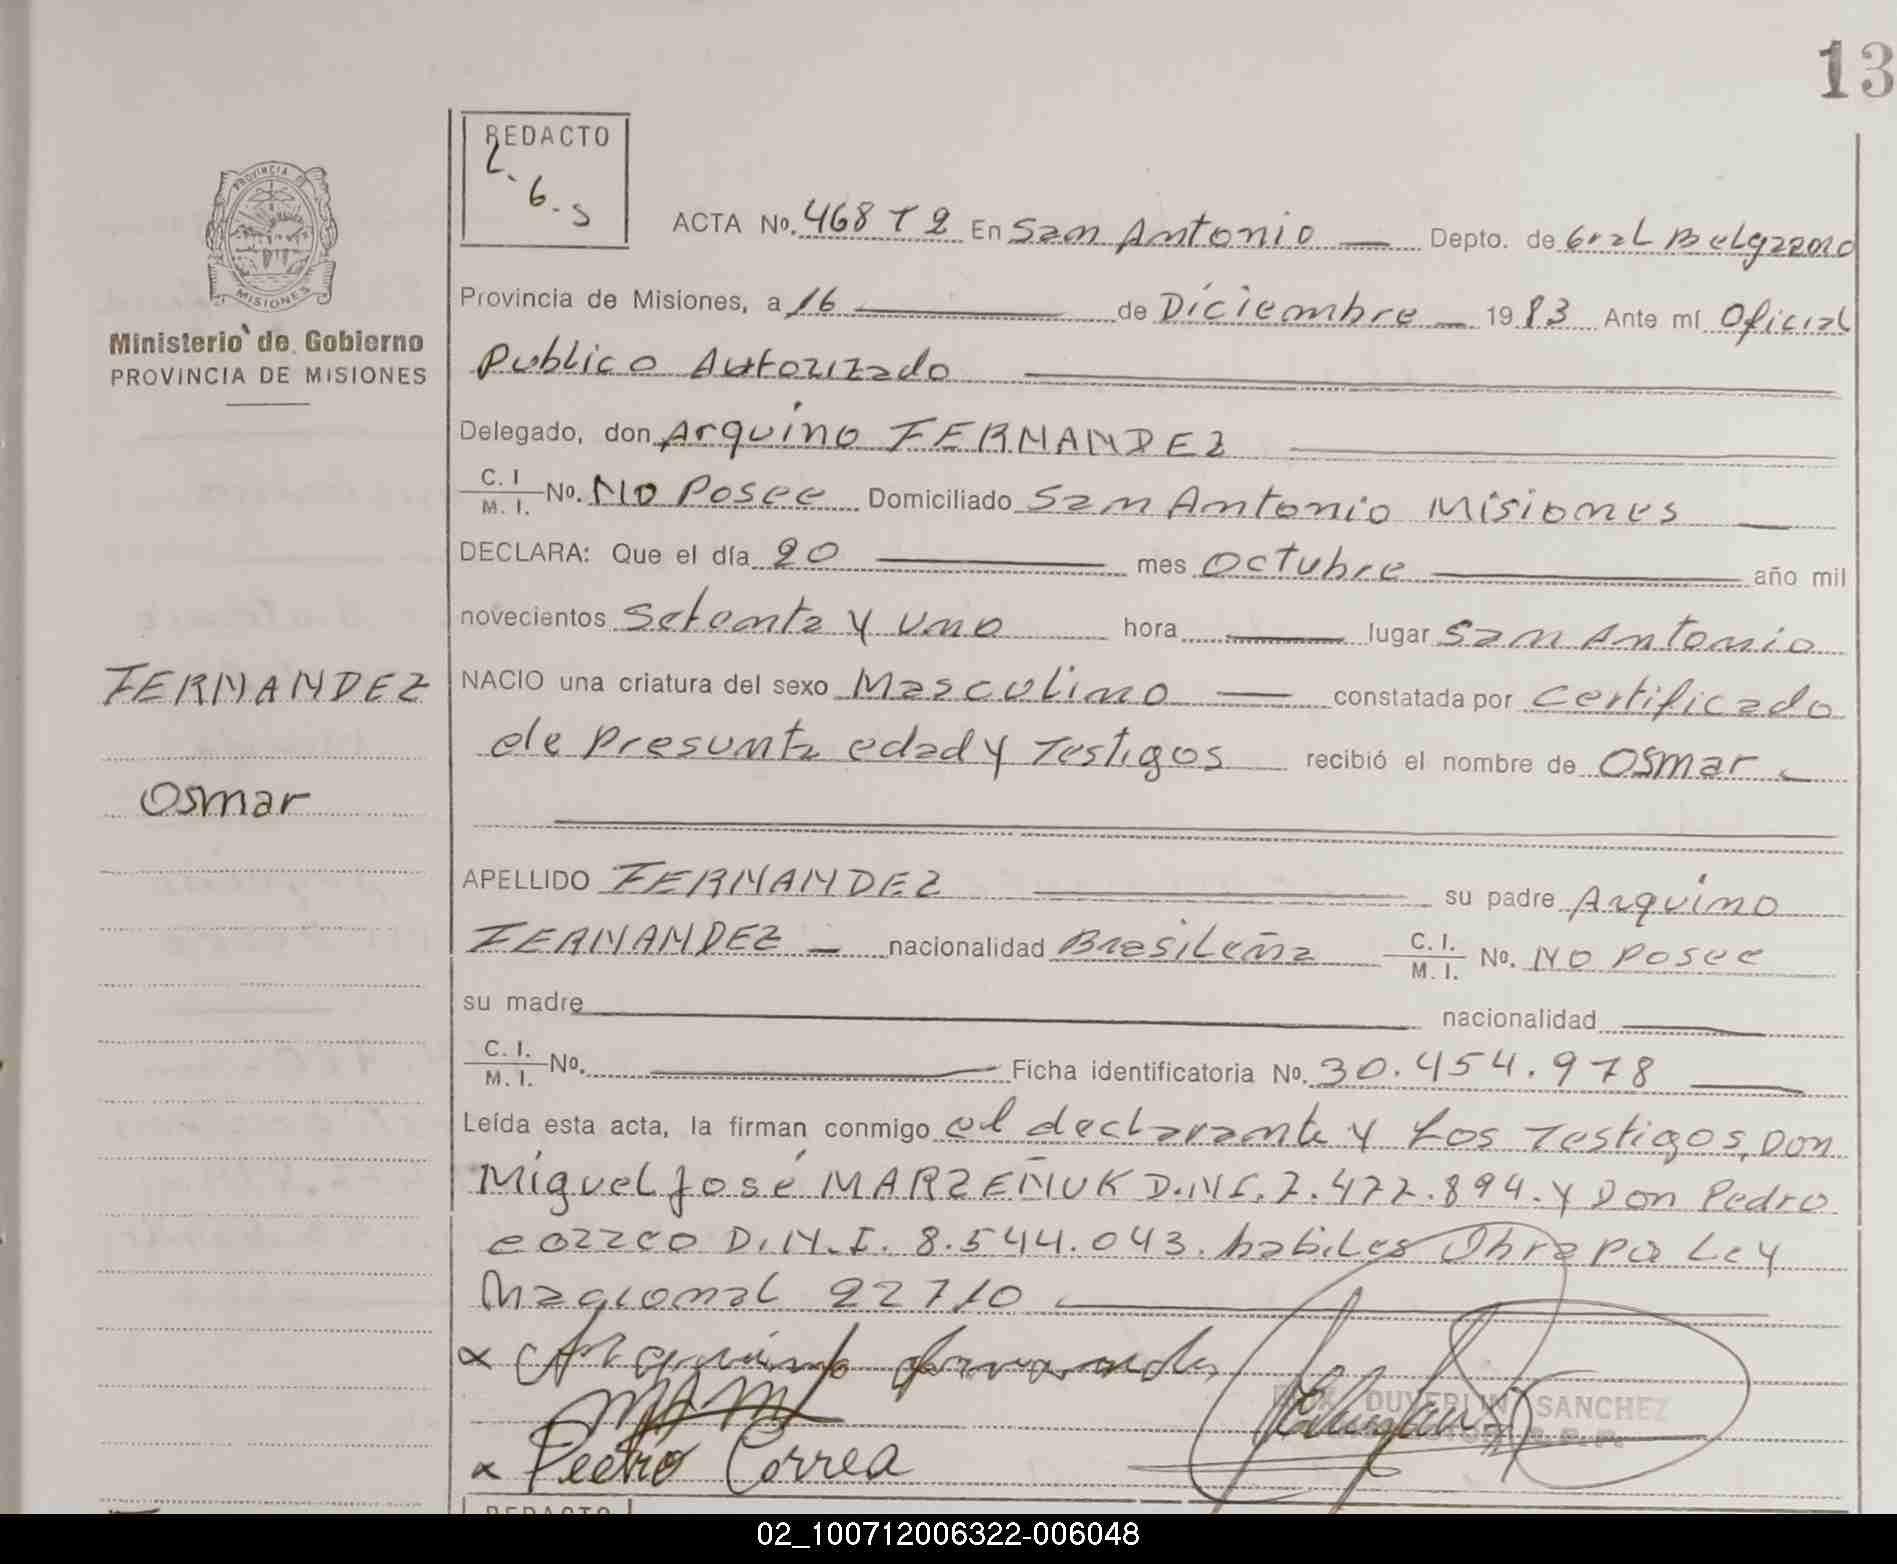 13
REDACTO
L. G. S
PROVINCIA DE
MISIONES
Ministerio de Gobierno
PROVINCIA DE MISIONES
ACTA No. 468 T2 En San Antonio — Depto. de Gral Belgrano
Provincia de Misiones, a 16 — de Diciembre — 1983 Ante mí Oficial
Publico Autorizado —
Delegado, don Arquino FERNANDEZ —
C. I / M. I. No. No Posee Domiciliado San Antonio Misiones —
DECLARA: Que el día 20 — mes Octubre — año mil
novecientos Setenta y uno hora — lugar San Antonio
FERNANDEZ
NACIO una criatura del sexo Masculino — constatada por Certificado
de Presunta edad y Testigos recibió el nombre de Osmar -
Osmar
APELLIDO FERNANDEZ — su padre Arquino
FERNANDEZ — nacionalidad Brasileña C. I. / M. I. No. No Posee
su madre — nacionalidad —
C. I. / M. I. No. — Ficha identificatoria No. 30.454.978 —
Leída esta acta, la firman conmigo el declarante y Los Testigos, Don
Miguel José MARZEÑUK D.N.I. 7.477.894. y Don Pedro
D.N.I. 8.544.043. habiles Obra por Ley
Nacional 22710 —
x Arquino
x Pedro Correa
DUVERLIN SANCHEZ
REDACTO
02_100712006322-006048